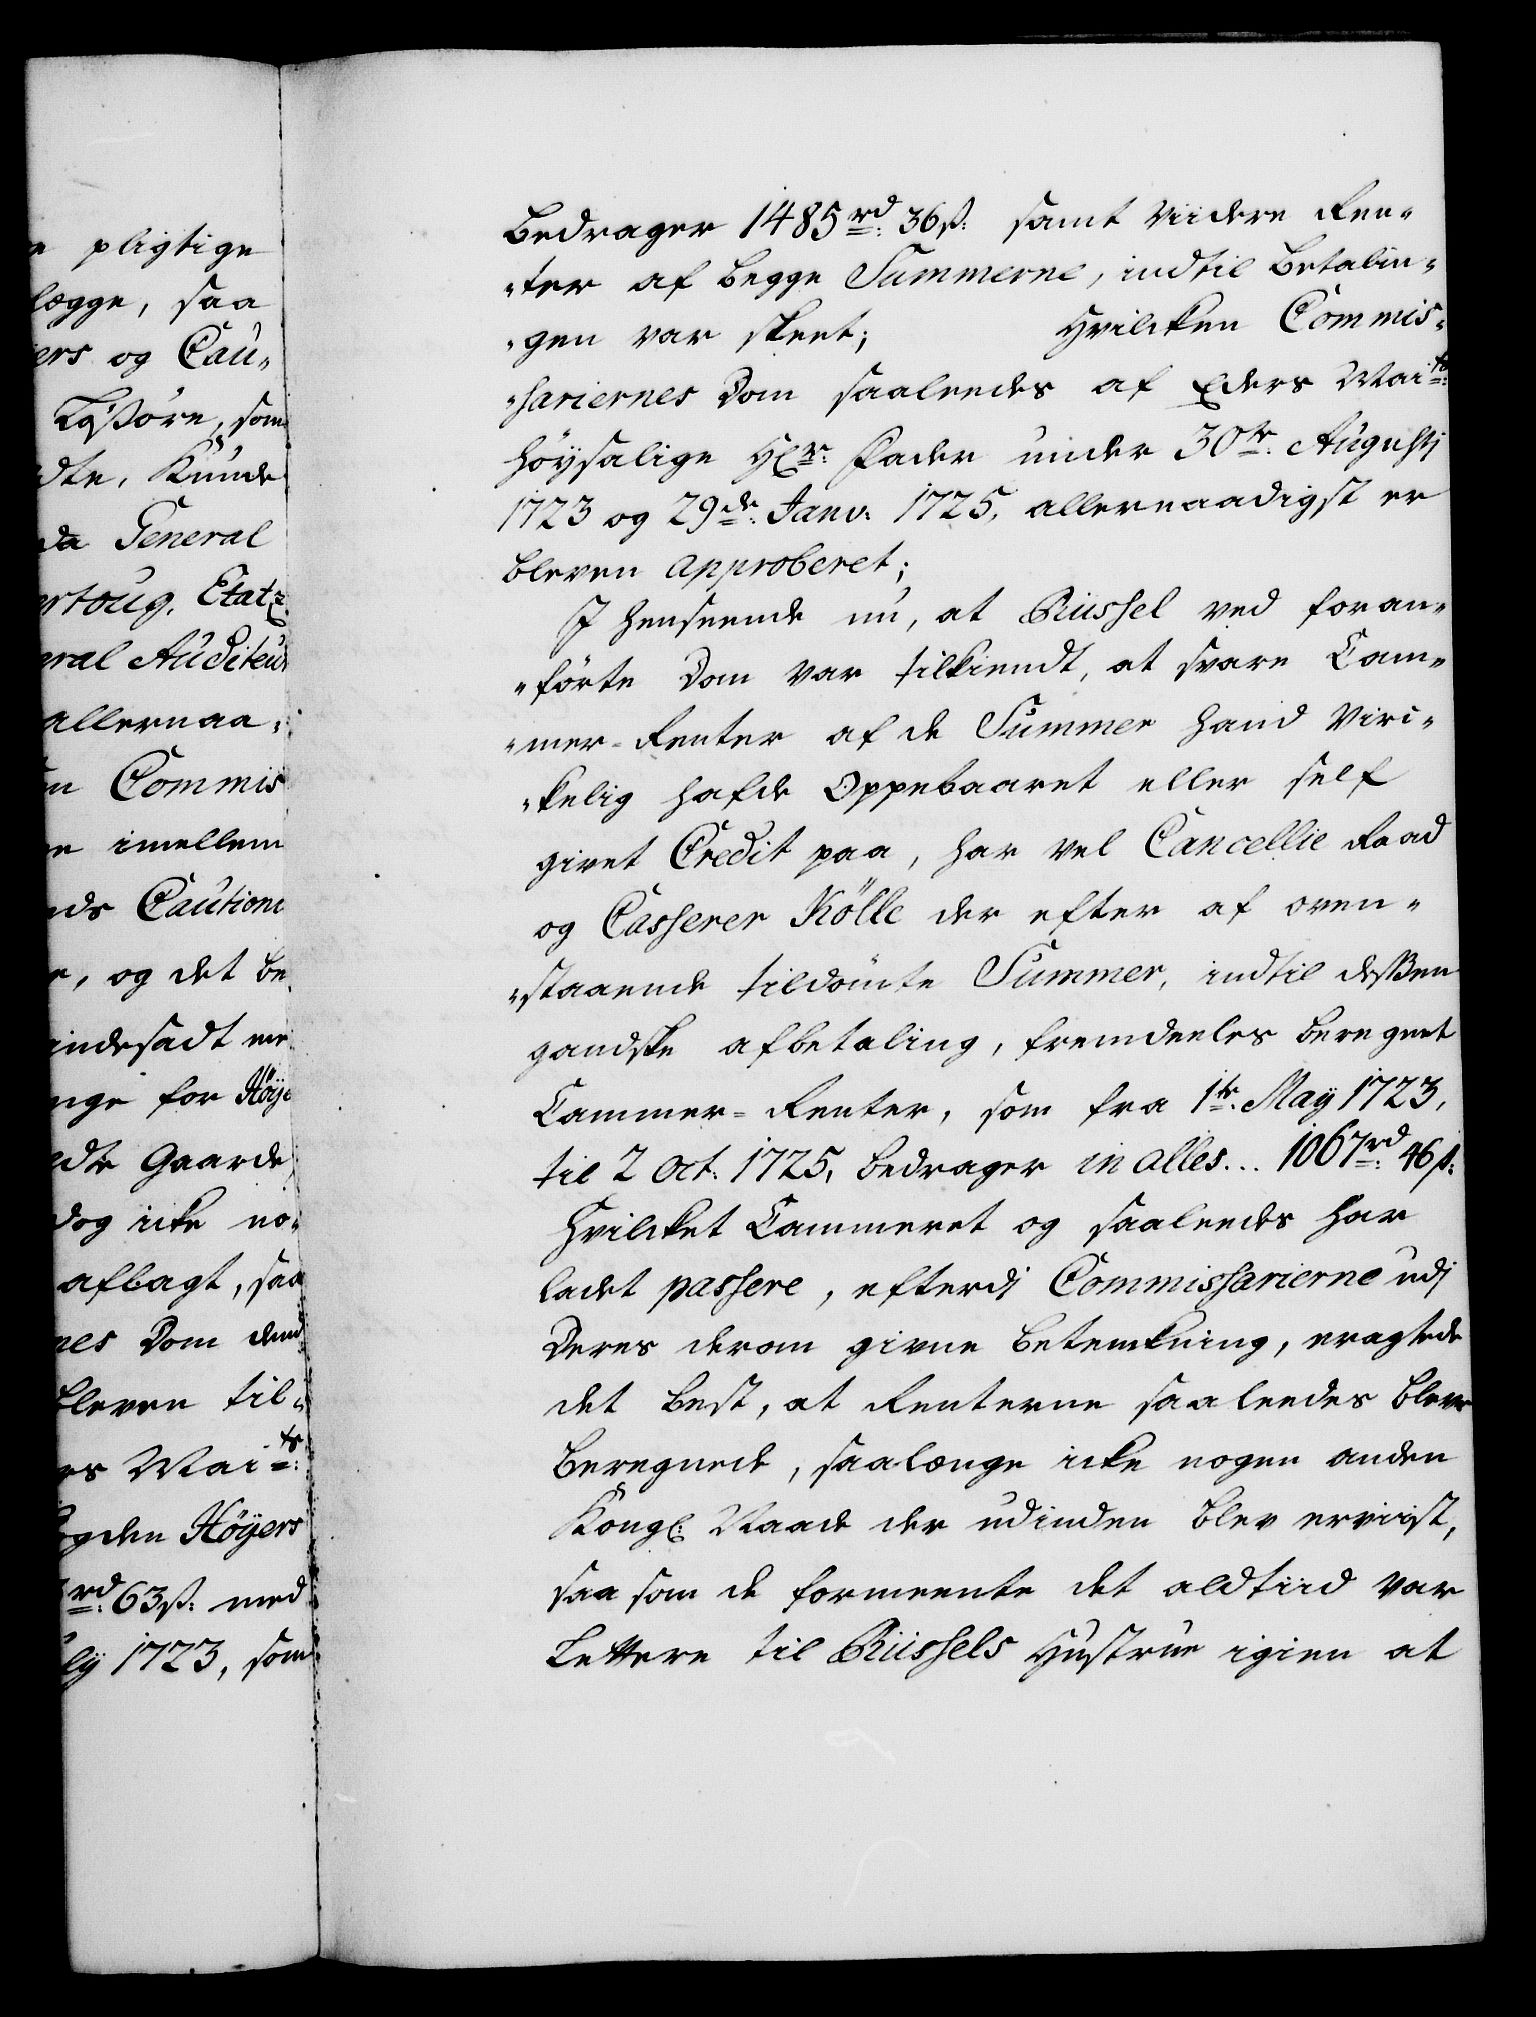 e pligtige
lægge, saa
ers og Cau-
som
dte, Kunde
da General
Etatz
eral Auditeur
allernaa-
en Commis
e imellem
nds Cautione
e, og det be
indesadt me
nge for Höye
edte Gaarde
dog icke no-
aflagt, saa
nes Dom dend
bleven til-
es Maits:
ogden Höyers
rd: 63ß: med
ly 1723, som
Bedrager 1485rd: 36ß: samt viidere Ren-
-ter af begge Summerne, indtil betalin-
-gen var skeet; Hvilcken Commis-
-sariernes Dom saaleedes af Eders Maits:
höysalige Hr: Fader under 30te: Augustj
1723 og 29de: Janv: 1725, allernaadigst er
bleven approberet;
J henseende nu, at Rüssel ved foran-
-förte Dom var tilkiendt, at svare Cam-
-mer-Renter af de Summer hand vire-
-kelig hafde oppebaaret eller self
givet Credit paa, har vel Cancellie Raad
og Casserer Kölle der efter af oven-
-staaende tildömte Summer, indtil dessen
gandske afbetaling, fremdeeles beregnet
Cammer-Renter, som fra 1te: May 1723,
til 2 Oct: 1725, bedrager in alles... 1067rd: 46ß:
Hvilcket Cammeret og saaleedes har
ladet passere, efterdj Commissarierne udj
Deres derom givne betenkning, eragtede
det best, at Renterne saaleedes bleve
beregnede, saalænge icke nogen anden
Kongl: Naade der udinden blev erviist,
saa som de formeente det aldtiid var
lettere til Rüssels Hustrue igien at